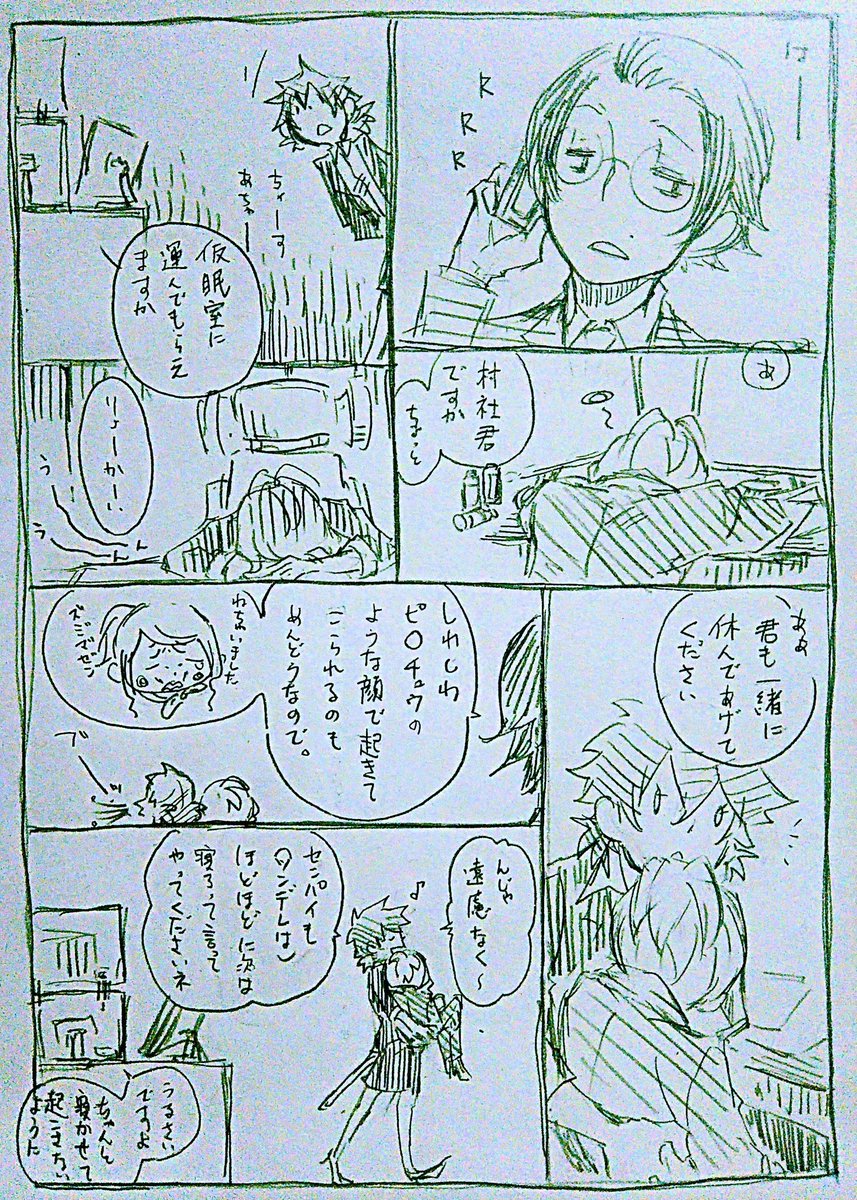 はー
R
R
R
あ
村社君
ですか
ちょっと
ちーす
あちゃー
仮眠室に
運んでもらえ
ますか
りょーかーい
う
う
ん
ん
ああ
君も一緒に
休んであげて
ください
しわしわ
ピ〇チュウの
ような顔で起きて
こられるのも
めんどうなので。
ねちゃいました
ブ
んじゃ
遠慮なく〜
♪
センパイも
ツンデレは
ほどほどに次は
寝ろって言って
やってくださいネ
うるさい
ですよ
ちゃんと
寝かせて
起こさない
ように